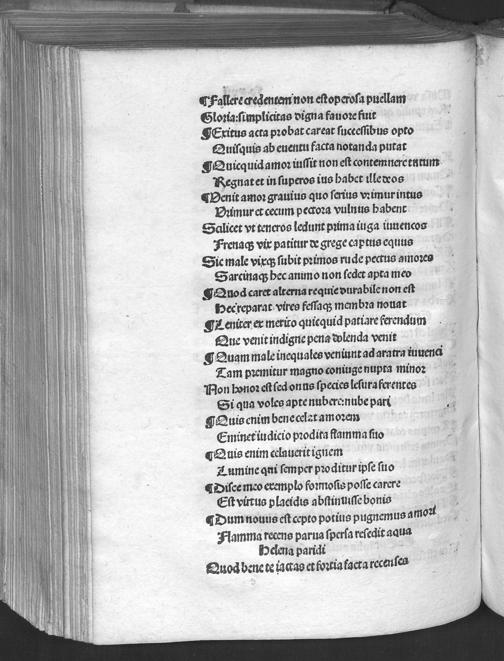 ¶Fallere credentem non est operosa puellam
Gloria: simplicitas digna fauore fuit
¶Exitus acta probat careat successibus opto
Quisquis ab euentu facta notanda putat
¶Quicquid amor iussit non est contemnere tutum
Regnat et in superos ius habet ille deos
¶Uenit amor grauius quo serius vrimur intus
Urimur et cecum pectora vulnus habent
Scilicet vt teneros ledunt prima iuga iuuencos
Frenaqꝫ vix patitur de grege captus equus
Sic male vixqꝫ subit primos rude pectus amores
Sarcinaqꝫ hec animo non sedet apta meo
¶Quod caret alterna requie durabile non est
Hec reparat vires fessaqꝫ membra nouat
¶Leniter ex merito quicquid patiare ferendum
Que venit indigne pena dolenda venit
¶Quam male inequales veniunt ad aratra iuuenci
Tam premitur magno coniuge nupta minor
Non honor est sed onus species lesura ferentes
Si qua voles apte nubere: nube pari
¶Quis enim bene celat amorem
Eminet iudicio prodita flamma suo
¶Quis enim celauerit ignem
Lumine qui semper proditur ipse suo
¶Disce meo exemplo formosis posse carere
Est virtus placidis abstinuisse bonis
¶Dum nouus est cepto potius pugnemus amori
Flamma recens parua spersa resedit aqua
Helena paridi
Quod bene te iactas et fortia facta recenses